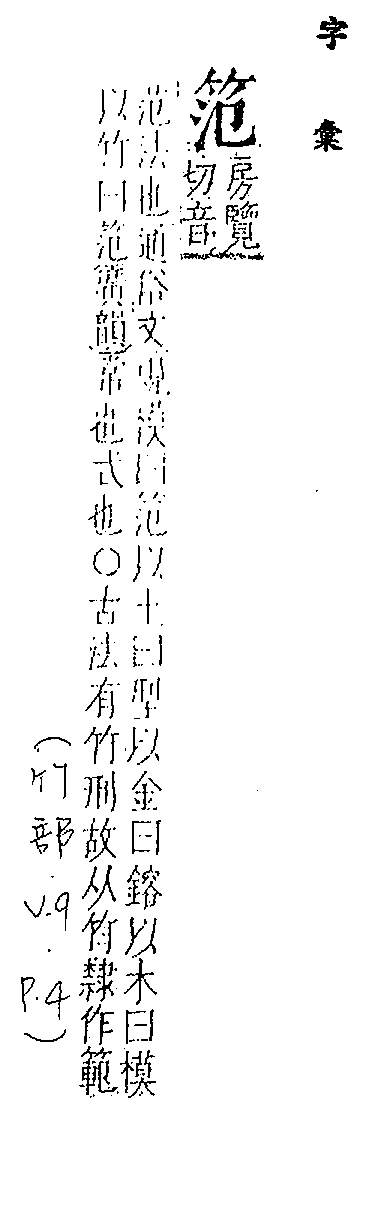 字彙
笵
房覽
切音
范法也通俗文規模曰笵以土曰型以金曰鎔以木曰模
以竹曰笵舊韻常也式也○古法有竹刑故从竹隸作範
(竹部.V.9.P.4)